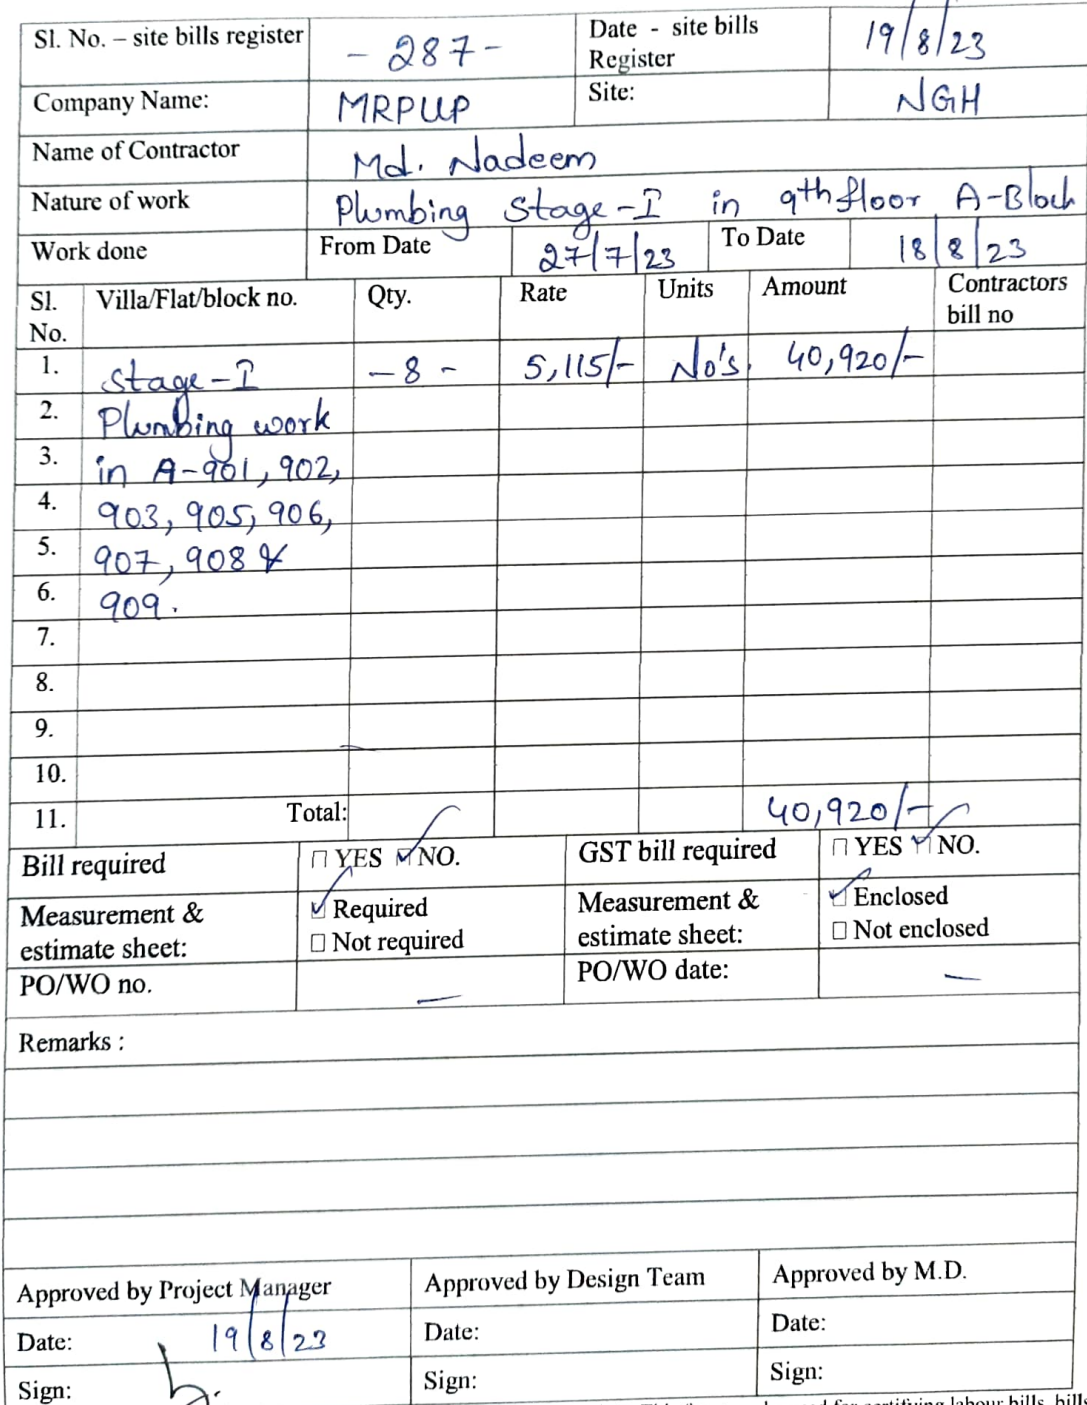 Sl. No. – site bills register - 287 - Date - site bills Register 19/8/23
Company Name: MRPUP Site: NGH
Name of Contractor Md. Nadeem
Nature of work Plumbing Stage-I in 9th floor A-Block
Work done From Date 27/7/23 To Date 18/8/23
Sl. No. Villa/Flat/block no. Qty. Rate Units Amount Contractors bill no
1. Stage-I - 8 - 5,115/- No's. 40,920/-
2. Plumbing work
3. in A-901, 902,
4. 903, 905, 906,
5. 907, 908 &
6. 909.
7.
8.
9.
10.
11. Total: 40,920/-
Bill required ☐ YES ☑ NO. GST bill required ☐ YES ☑ NO.
Measurement & estimate sheet: ☑ Required ☐ Not required Measurement & estimate sheet: ☑ Enclosed ☐ Not enclosed
PO/WO no. — PO/WO date: —
Remarks :
Approved by Project Manager Approved by Design Team Approved by M.D.
Date: 19/8/23 Date: Date:
Sign: Sign: Sign:
for certifying labour bills, bills